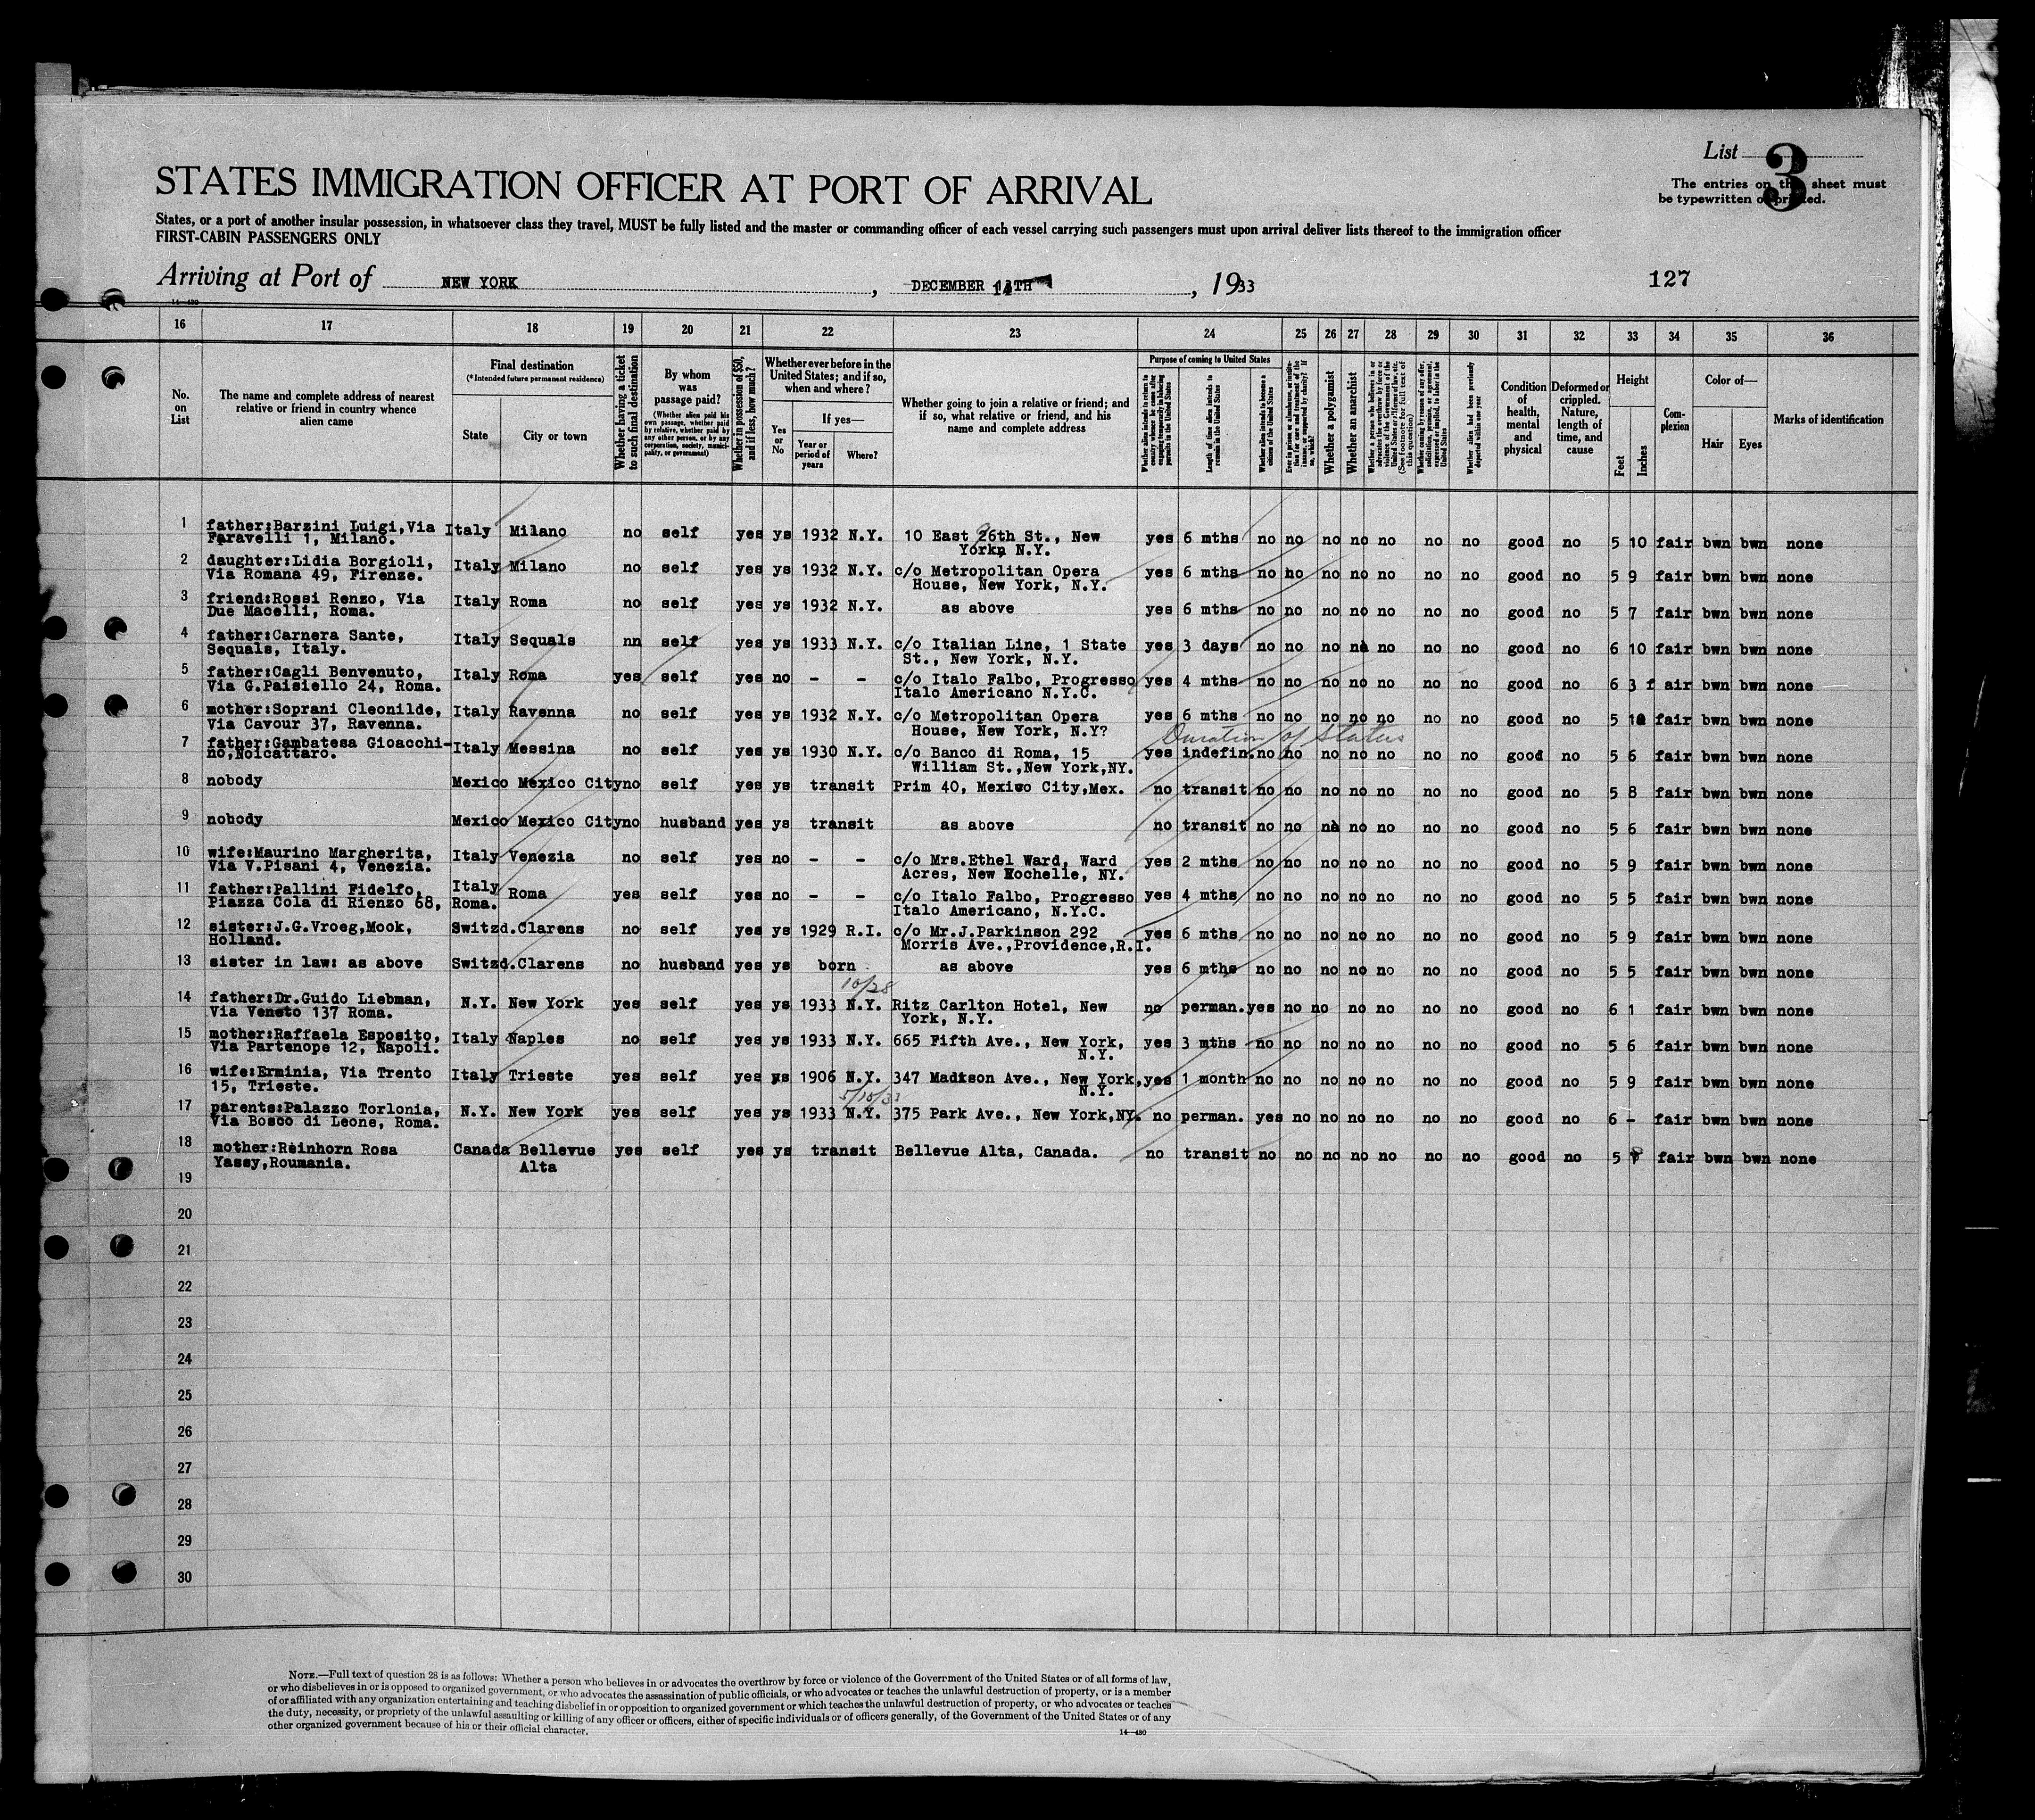 List 3
The entries on this sheet must
be typewritten or printed.
STATES IMMIGRATION OFFICER AT PORT OF ARRIVAL
States, or a port of another insular possession, in whatsoever class they travel, MUST be fully listed and the master or commanding officer of each vessel carrying such passengers must upon arrival deliver lists thereof to the immigration officer
FIRST-CABIN PASSENGERS ONLY
Arriving at Port of NEW YORK, DECEMBER TH, 1933 127
14-430
16 17 18 19 20 21 22 23 24 25 26 27 28 29 30 31 32 33 34 35 36
No. on List
The name and complete address of nearest relative or friend in country whence alien came
Final destination
(*Intended future permanent residence)
State
City or town
Whether having a ticket to such final destination
By whom was passage paid?
(Whether alien paid his own passage, whether paid by relative, whether paid by any other person, or by any corporation, society, municipality, or government)
Whether in possession of $50, and if less, how much?
Whether ever before in the United States; and if so, when and where?
Yes or No
If yes—
Year or period of years
Where?
Whether going to join a relative or friend; and if so, what relative or friend, and his name and complete address
Purpose of coming to United States
Whether alien intends to return to country whence he came after engaging temporarily in laboring pursuits in the United States
Length of time alien intends to remain in the United States
Whether alien intends to become a citizen of the United States
Ever in prison or almshouse, or institution for care and treatment of the insane, or supported by charity? If so, which?
Whether a polygamist
Whether an anarchist
Whether a person who believes in or advocates the overthrow by force or violence of the Government of the United States or all forms of law, etc. (See footnote for full text of this question)
Whether coming by reason of any offer, solicitation, promise, or agreement, expressed or implied, to labor in the United States
Whether alien had been previously deported within one year
Condition of health, mental and physical
Deformed or crippled. Nature, length of time, and cause
Height
Feet
Inches
Complexion
Color of—
Hair
Eyes
Marks of identification
1 father:Barzini Luigi,Via Italy Milano no self yes ys 1932 N.Y. 10 East 26th St., New yes 6 mths no no no no no no no good no 5 10 fair bwn bwn none
Faravelli 1, Milano. York, N.Y.
2 daughter:Lidia Borgioli, Italy Milano no self yes ys 1932 N.Y. c/o Metropolitan Opera yes 6 mths no no no no no no no good no 5 9 fair bwn bwn none
Via Romana 49, Firenze. House, New York, N.Y.
3 friend:Rossi Renzo, Via Italy Roma no self yes ys 1932 N.Y. as above yes 6 mths no no no no no no no good no 5 7 fair bwn bwn none
Due Macelli, Roma.
4 father:Carnera Sante, Italy Sequals nn self yes ys 1933 N.Y. c/o Italian Line, 1 State yes 3 days no no no no no no no good no 6 10 fair bwn bwn none
Sequals, Italy. St., New York, N.Y.
5 father:Cagli Benvenuto, Italy Roma yes self yes no - - c/o Italo Falbo, Progresso yes 4 mths no no no no no no no good no 6 3 f air bwn bwn none
Via G.Paisiello 24, Roma. Italo Americano N.Y.C.
6 mother:Soprani Cleonilde, Italy Ravenna no self yes ys 1932 N.Y. c/o Metropolitan Opera yes 6 mths no no no no no no no good no 5 fair bwn bwn none
Via Cavour 37, Ravenna. House, New York, N.Y?
Duration of Status
7 father:Gambatesa Gioacchi- Italy Messina no self yes ys 1930 N.Y. c/o Banco di Roma, 15 yes indefin. no no no no no no no good no 5 6 fair bwn bwn none
no,Noicattaro. William St.,New York,NY.
8 nobody Mexico Mexico City no self yes ys transit Prim 40, Mexico City,Mex. no transit no no no no no no no good no 5 8 fair bwn bwn none
9 nobody Mexico Mexico City no husband yes ys transit as above no transit no no no no no no no good no 5 6 fair bwn bwn none
10 wife:Maurino Margherita, Italy Venezia no self yes no - - c/o Mrs.Ethel Ward, Ward yes 2 mths no no no no no no no good no 5 9 fair bwn bwn none
Via V.Pisani 4, Venezia. Acres, New Rochelle, NY.
11 father:Pallini Fidelfo, Italy Roma yes self yes no - - c/o Italo Falbo, Progresso yes 4 mths no no no no no no no good no 5 5 fair bwn bwn none
Piazza Cola di Rienzo 68, Roma. Italo Americano, N.Y.C.
12 sister:J.G.Vroeg,Mook, Switzd.Clarens no self yes ys 1929 R.I. c/o Mr.J.Parkinson 292 yes 6 mths no no no no no no no good no 5 9 fair bwn bwn none
Holland. Morris Ave.,Providence,R.I.
13 sister in law: as above Switzd.Clarens no husband yes ys born as above yes 6 mths no no no no no no no good no 5 5 fair bwn bwn none
10/28
14 father:Dr.Guido Liebman, N.Y. New York yes self yes ys 1933 N.Y. Ritz Carlton Hotel, New no perman. yes no no no no no no good no 6 1 fair bwn bwn none
Via Veneto 137 Roma. York, N.Y.
15 mother:Raffaela Esposito, Italy Naples no self yes ys 1933 N.Y. 665 Fifth Ave., New York, yes 3 mths no no no no no no no good no 5 6 fair bwn bwn none
Via Partenope 12, Napoli. N.Y.
16 wife:Erminia, Via Trento Italy Trieste yes self yes ys 1906 N.Y. 347 Madison Ave., New York, yes 1 month no no no no no no no good no 5 9 fair bwn bwn none
15, Trieste. N.Y.
5/10/33
17 parents:Palazzo Torlonia, N.Y. New York yes self yes ys 1933 N.Y. 375 Park Ave., New York,NY. no perman. yes no no no no no no good no 6 - fair bwn bwn none
Via Bosco di Leone, Roma.
18 mother:Reinhorn Rosa Canada Bellevue yes self yes ys transit Bellevue Alta, Canada. no transit no no no no no no no good no 5 fair bwn bwn none
Yassy,Roumania. Alta
19
20
21
22
23
24
25
26
27
28
29
30
NOTE.—Full text of question 28 is as follows: Whether a person who believes in or advocates the overthrow by force or violence of the Government of the United States or of all forms of law,
or who disbelieves in or is opposed to organized government, or who advocates the assassination of public officials, or who advocates or teaches the unlawful destruction of property, or is a member
of or affiliated with any organization entertaining and teaching disbelief in or opposition to organized government or which teaches the unlawful destruction of property, or who advocates or teaches
the duty, necessity, or propriety of the unlawful assaulting or killing of any officer or officers, either of specific individuals or of officers generally, of the Government of the United States or of any
other organized government because of his or their official character.
14-430